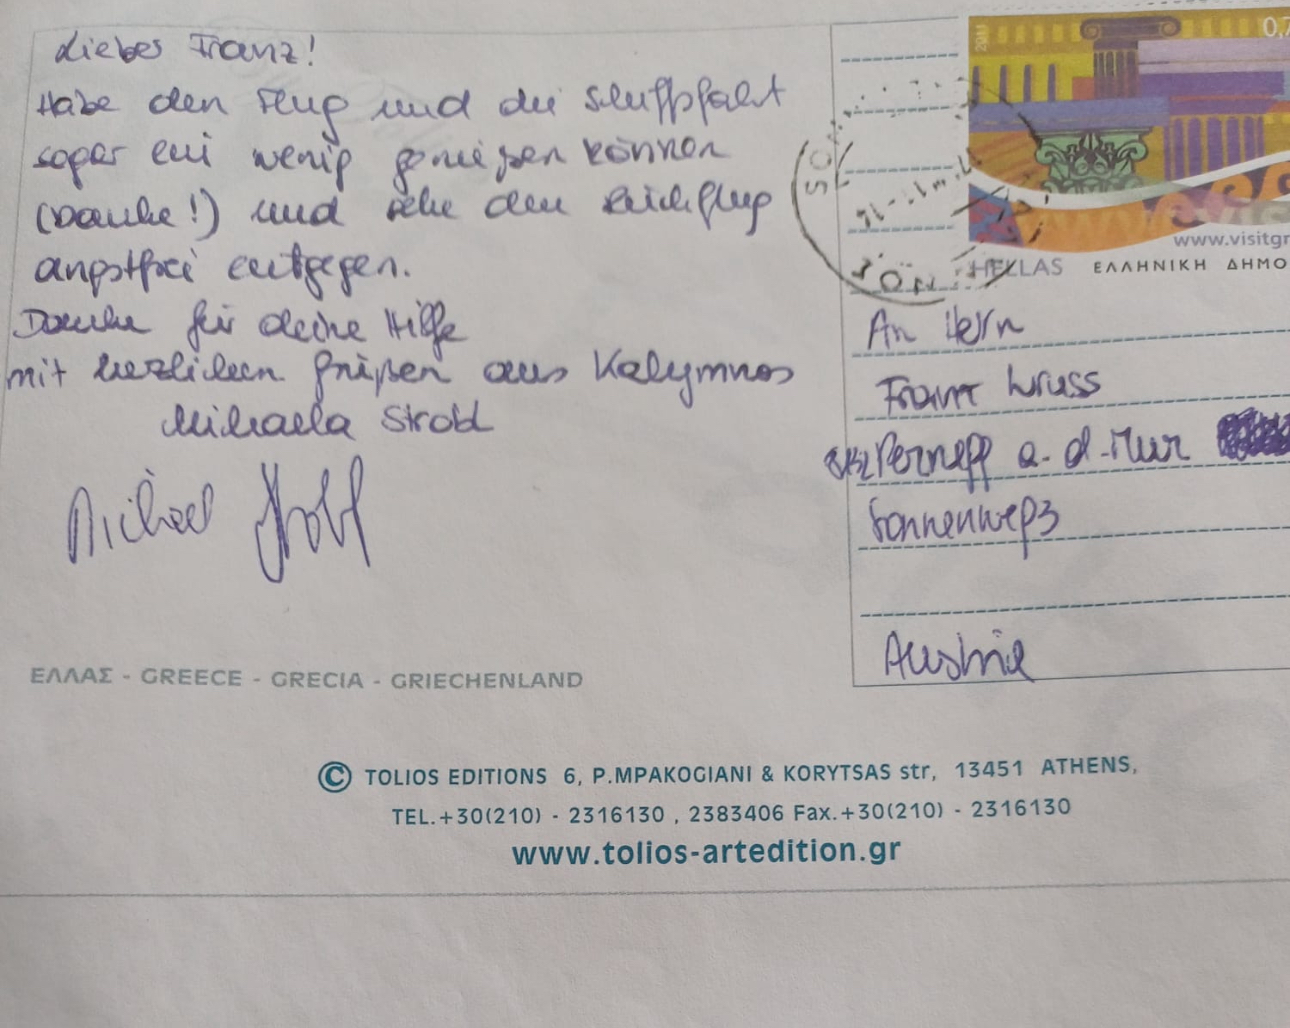 Liebes Franz!
Habe den Flug und die Schiffsfahrt
sogar ein wenig genießen können
(Danke!) und sehe den Rückflug
angstfrei entgegen.
Danke für deine Hilfe
mit herzlichen Grüßen aus Kalymnos
Michaela Strobl
Michael Strobl
2011
0,7
www.visitgr
HELLAS ΕΛΛΗΝΙΚΗ ΔΗΜΟ
An Herrn
Franz Wruss
Pernegg a. d. Mur
Sonnenweg 3
Austria
ΕΛΛΑΣ - GREECE - GRECIA - GRIECHENLAND
© TOLIOS EDITIONS 6, P.MPAKOGIANI & KORYTSAS str, 13451 ATHENS,
TEL.+30(210) - 2316130 , 2383406 Fax.+30(210) - 2316130
www.tolios-artedition.gr